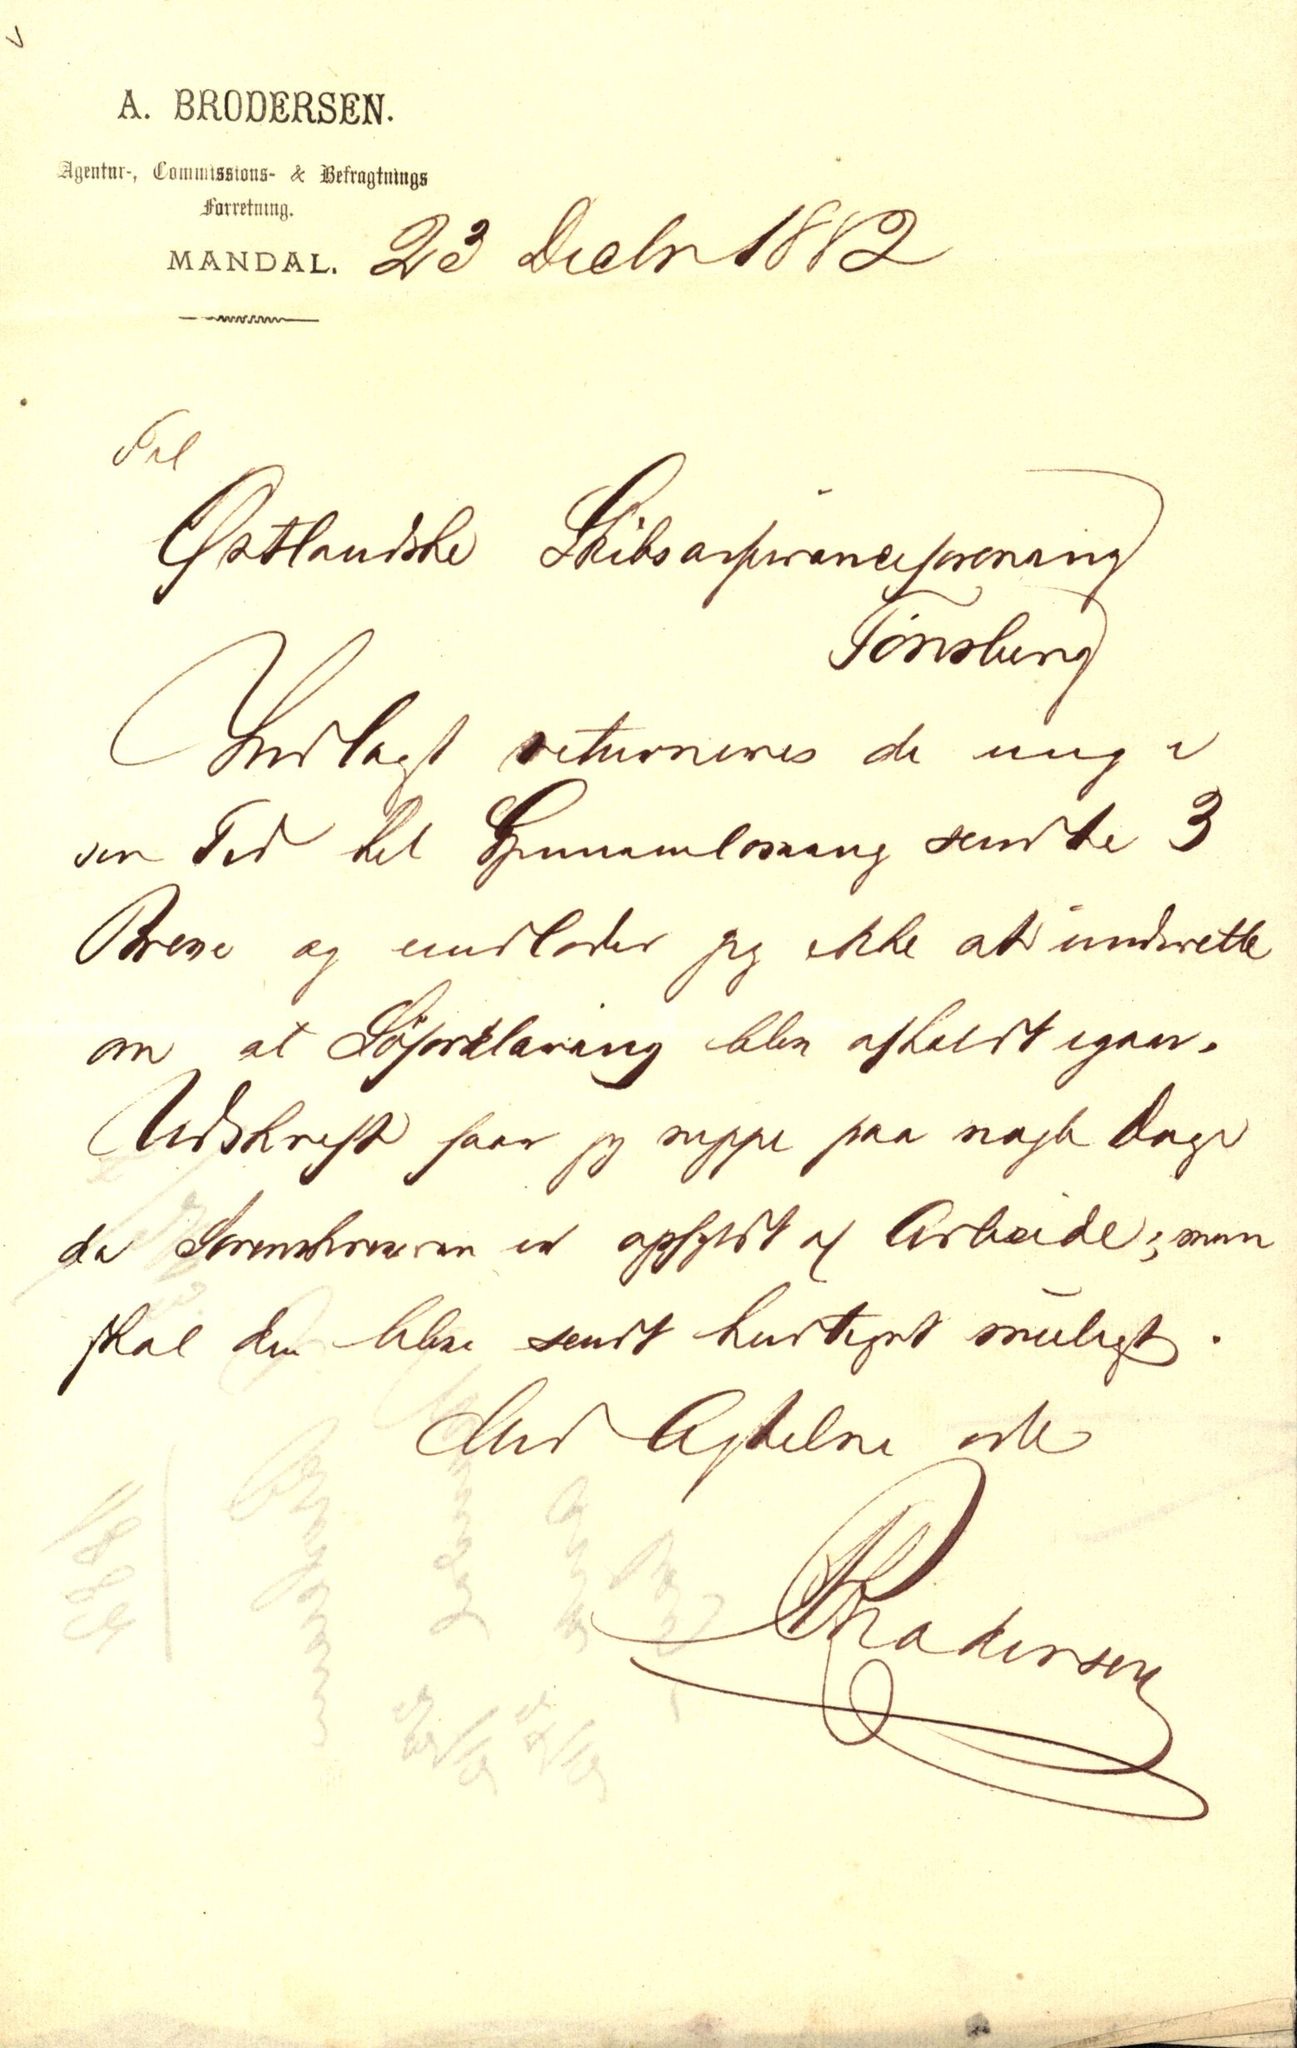 A. BRODERSEN.
Agentur-, Commissions- & Befragtnings
Forretning.
MANDAL. 23 Decbr 1882
Til
Østlandske Skibsassuranceforening
Tönsberg
Indlagt returneres de mig i
sin Tid til sendte 3
Breve og undlader jeg ikke at underrette
om at Söforklaring blev afholdt igaar.
Udskrift faar jeg neppe paa nogle Dage
da Sorenskriveren er opfyldt af Arbeide; men
skal den blive sendt hurtigst muligt.
Med Agtelse
A Brodersen